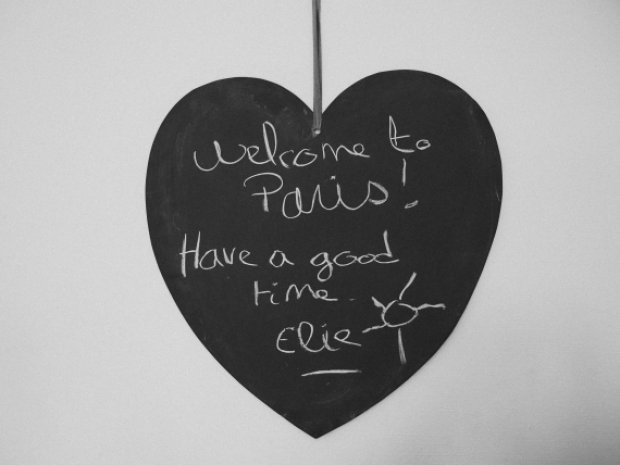 Welcome to
Paris!
Have a good
time.
Elie